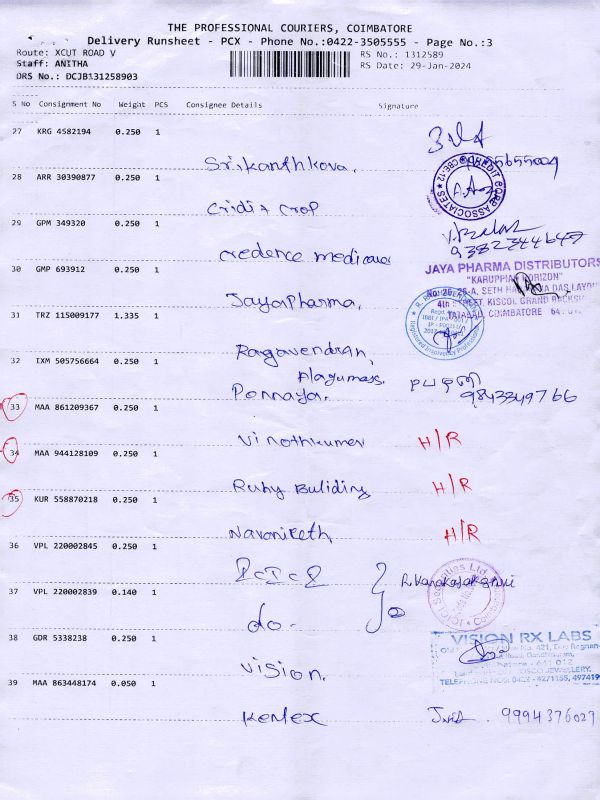 THE PROFESSIONAL COURIERS, COIMBATORE
Delivery Runsheet - PCX - Phone No.:0422-3505555 - Page No.:3
Route: XCUT ROAD V
RS No.: 1312589
Staff: ANITHA
RS Date: 29-Jan-2024
DRS No.: DCJB131258903
S No Consignment No Weight PCS Consignee Details Signature
27 KRG 4582194 0.250 1
Srikanthkova.
28 ARR 30390877 0.250 1
Cridit Crop
29 GPM 349320 0.250 1
credence medicare
9382344647
30 GMP 693912 0.250 1
JAYA PHARMA DISTRIBUTORS
"KARUPPIAH HORIZON"
JayaPharma.
4th STREET, KISCOL GRAND
TATABAD, COIMBATORE
31 TRZ 115009177 1.335 1
Ragavendran,
32 IXM 505756664 0.250 1
Alagumass.
Ponnaya.
9843349766
33 MAA 861209367 0.250 1
Vinothkumar H/R
34 MAA 944128109 0.250 1
Ruby Buliding H/R
35 KUR 558870218 0.250 1
Navanireth H/R
36 VPL 220002845 0.250 1
37 VPL 220002839 0.140 1
do.
ICICI Securities Ltd.
38 GDR 5338238 0.250 1
VISION RX LABS
vision.
39 MAA 863448174 0.050 1
Kemtex
9994376027